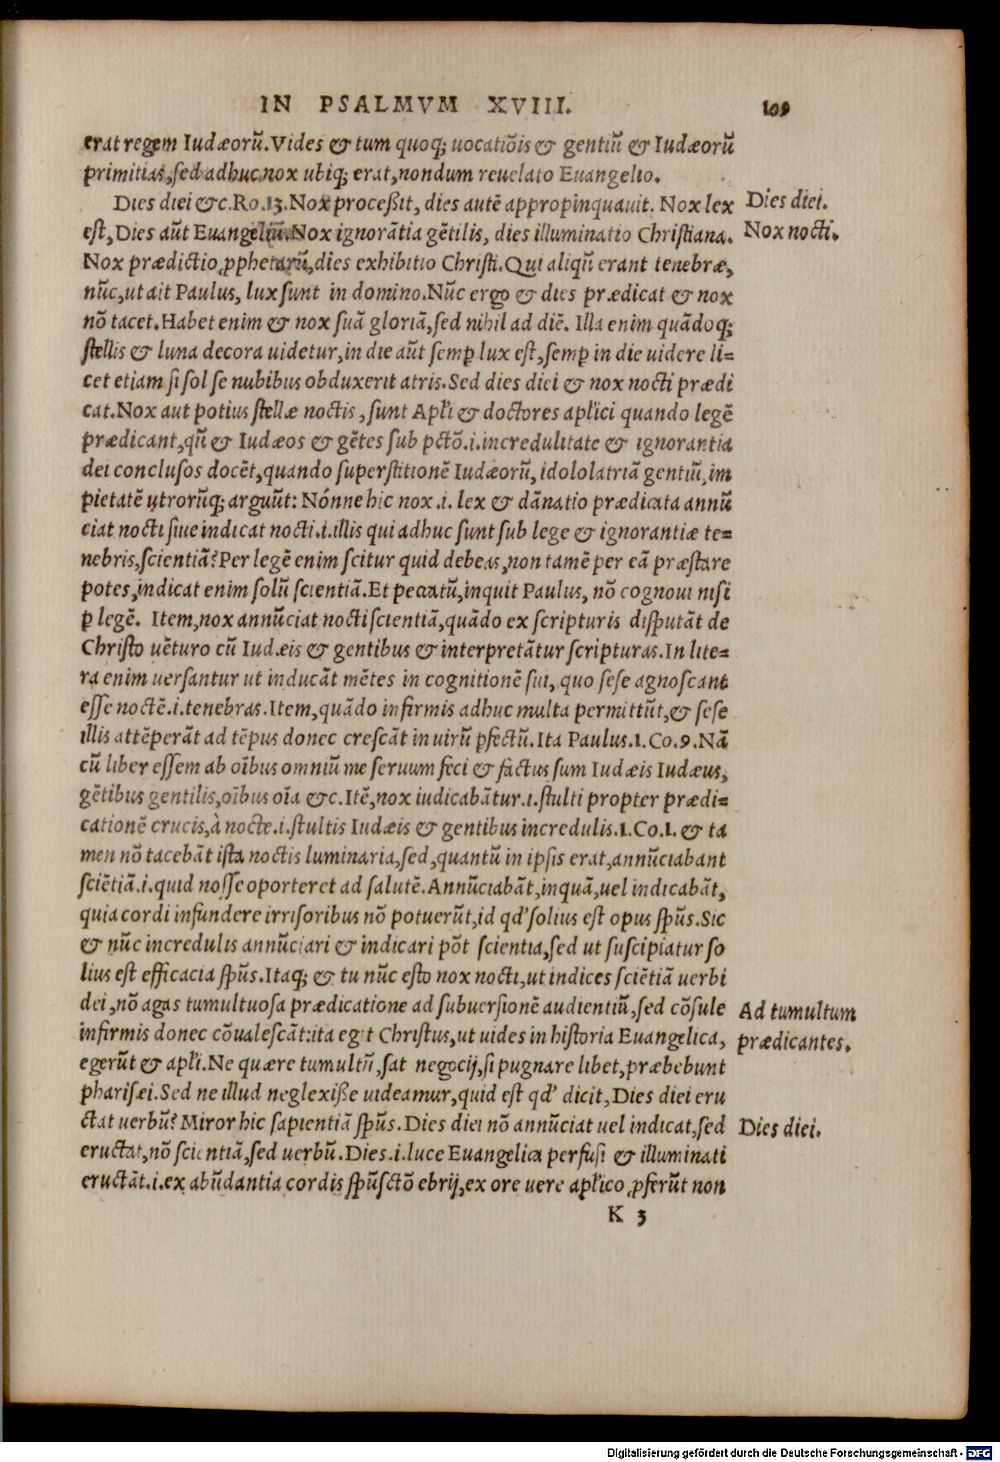 IN PSALMVM XVIII. 109
erat regem Iudæorũ. Vides & tum quoq; uocatiõis & gentiũ & Iudæorũ
primitias, sed adhuc nox ubiq; erat, nondum reuelato Euangelio.
Dies diei &c. Ro. 13. Nox proceßit, dies autẽ appropinquauit. Nox lex
Dies diei.
est, Dies aũt Euangeliũ. Nox ignorãtia gẽtilis, dies illuminatio Christiana.
Nox nocti.
Nox prædictio ꝓphetarũ, dies exhibitio Christi. Qui aliqñ erant tenebræ,
nũc, ut ait Paulus, lux sunt in domino. Nũc ergo & dies prædicat & nox
nõ tacet. Habet enim & nox suã gloriã, sed nihil ad diẽ. Illa enim quãdoq;
stellis & luna decora uidetur, in die aũt semꝑ lux est, semꝑ in die uidere li=
cet etiam si sol se nubibus obduxerit atris. Sed dies diei & nox nocti prædi
cat. Nox aut potius stellæ noctis, sunt Apłi & doctores apłici quando legẽ
prædicant, qñ & Iudæos & gẽtes sub pctõ .i. incredulitate & ignorantia
dei conclusos docẽt, quando superstitionẽ Iudæorũ, idololatriã gentiũ, im
pietatẽ utrorũq; arguũt: Nónne hic nox .i. lex & dãnatio prædicata annũ
ciat nocti siue indicat nocti .i. illis qui adhuc sunt sub lege & ignorantiæ te=
nebris, scientiã? Per legẽ enim scitur quid debeas, non tamẽ per eã præstare
potes, indicat enim solũ scientiã. Et peccatũ, inquit Paulus, nõ cognoui nisi
ꝑ legẽ. Item, nox annũciat nocti scientiã, quãdo ex scripturis disputãt de
Christo uẽturo cũ Iudæis & gentibus & interpretãtur scripturas. In lite=
ra enim uersantur ut inducãt mẽtes in cognitionẽ sui, quo sese agnoscant
esse noctẽ .i. tenebras. Item, quãdo infirmis adhuc multa permittũt, & sese
illis attẽperãt ad tẽpus donec crescãt in uirũ ꝑfectũ. Ita Paulus. 1. Co. 9. Nã
cũ liber essem ab oĩbus omniũ me seruum feci & factus sum Iudæis Iudæus,
gẽtibus gentilis, oĩbus oĩa &c. Itẽ, nox iudicabãtur .i. stulti propter prædi=
cationẽ crucis, à nocte .i. stultis Iudæis & gentibus incredulis. 1. Co. 1. & ta
men nõ tacebãt ista noctis luminaria, sed, quantũ in ipsis erat, annũciabant
sciẽtiã .i. quid nosse oporteret ad salutẽ. Annũciabãt, inquã, uel indicabãt,
quia cordi infundere irrisoribus nõ potuerũt, id qd' solius est opus spũs. Sic
& nũc incredulis annũciari & indicari põt scientia, sed ut suscipiatur so
lius est efficacia spũs. Itaq; & tu nũc esto nox nocti, ut indices sciẽtiã uerbi
dei, nõ agas tumultuosa prædicatione ad subuersionẽ audientiũ, sed cõsule
Ad tumultum
infirmis donec cõualescãt: ita egit Christus, ut uides in historia Euangelica,
prædicantes.
egerũt & apłi. Ne quære tumultũ, sat negocij, si pugnare libet, præbebunt
pharisæi. Sed ne illud neglexiße uideamur, quid est qd' dicit, Dies diei eru
ctat uerbũ? Miror hic sapientiã spũs. Dies diei nõ annũciat uel indicat, sed
Dies diei.
eructat, nõ scientiã, sed uerbũ. Dies .i. luce Euangelica perfusi & illuminati
eructãt .i. ex abũdantia cordis spũsctõ ebrij, ex ore uere apłico ꝓferũt non
K 3
Digitalisierung gefördert durch die Deutsche Forschungsgemeinschaft - DFG